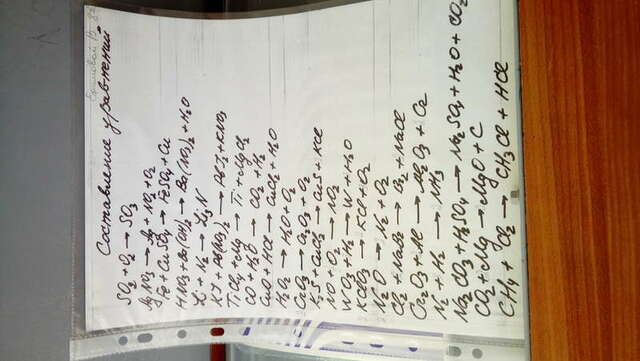 Составление уравнений
SO₂ + O₂ → SO₃
AgNO₃ → Ag + NO₂ + O₂
Fe + CuSO₄ → FeSO₄ + Cu
HNO₃ + Ba(OH)₂ → Ba(NO₃)₂ + H₂O
Li + N₂ → Li₃N
KJ + Pb(NO₃)₂ → PbJ₂ + KNO₃
TiCl₄ + Mg → Ti + MgCl₂
CO + H₂O → CO₂ + H₂
CuO + HCl → CuCl₂ + H₂O
H₂O₂ → H₂O + O₂
CrO₃ → Cr₂O₃ + O₂
K₂S + CuCl₂ → CuS + KCl
NO + O₂ → NO₂
WO₃ + H₂ → W + H₂O
KClO₃ → KCl + O₂
N₂O → N₂ + O₂
Cl₂ + NaBr → Br₂ + NaCl
Cr₂O₃ + Al → Al₂O₃ + Cr
N₂ + H₂ → NH₃
Na₂CO₃ + H₂SO₄ → Na₂SO₄ + H₂O + CO₂
CO₂ + Mg → MgO + C
CH₄ + Cl₂ → CH₃Cl + HCl